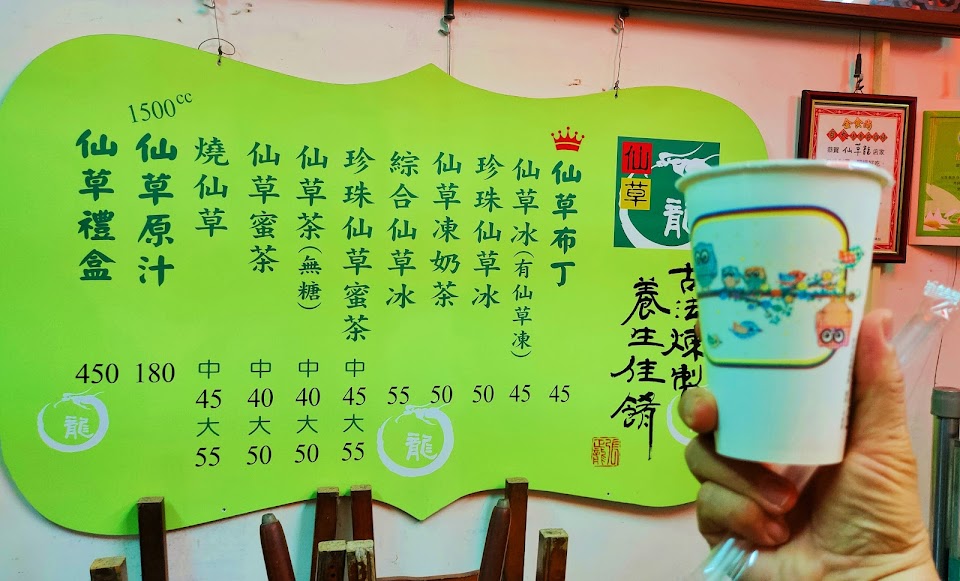 仙草
龍
古法煉製
養生佳餚
仙草布丁
45
仙草冰(有仙草凍)
45
珍珠仙草冰
50
仙草凍奶茶
50
綜合仙草冰
55
珍珠仙草蜜茶
中
45
大
55
仙草茶(無糖)
中
40
大
50
仙草蜜茶
中
40
大
50
燒仙草
中
45
大
55
1500cc
仙草原汁
180
仙草禮盒
450
龍
龍